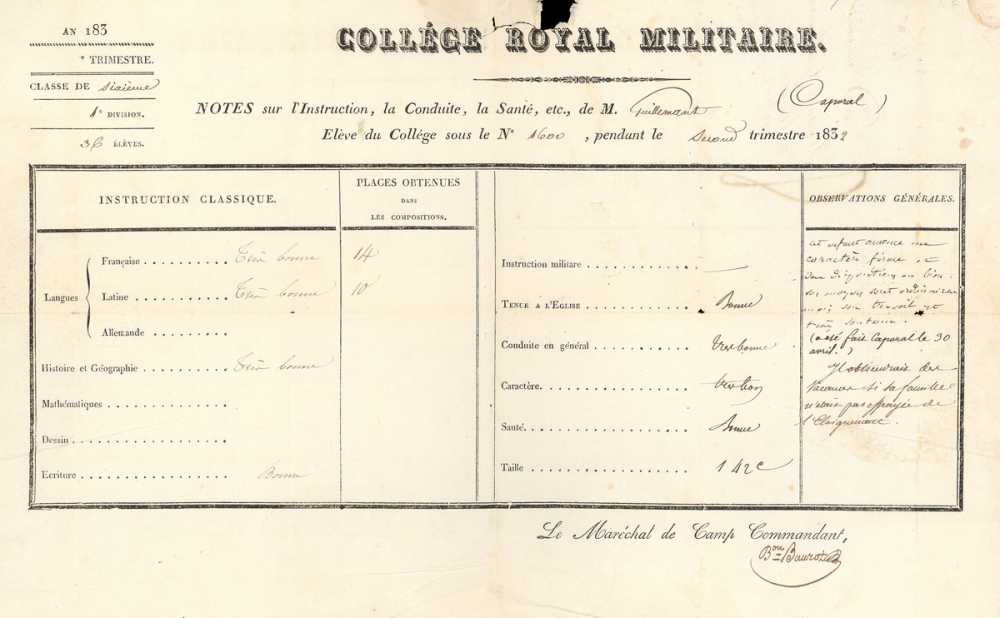 AN 183
e TRIMESTRE.
CLASSE DE Sixième
1e DIVISION.
36 ÉLÈVES.
COLLÉGE ROYAL MILITAIRE.
NOTES sur l'Instruction, la Conduite, la Santé, etc., de M. Guillemant (Caporal)
Elève du Collége sous le No 1600, pendant le Second trimestre 1832
INSTRUCTION CLASSIQUE.
PLACES OBTENUES
DANS
LES COMPOSITIONS.
Langues
Française .......... Très bonne 14
Latine ............ Très bonne 10
Allemande .........
Histoire et Géographie .......... Très bonne
Mathématiques ................
Dessin ....................
Ecriture ................. Bonne
Instruction militaire ............ —
TENUE A L'EGLISE ............ Bonne
Conduite en général ........... tres bonne
Caractère. ................ tres bon
Santé. ................. Bonne
Taille ................. 1 42c
OBSERVATIONS GÉNÉRALES.
cet enfant annonce un
caractère ferme et
son disposition au bien.
ses moyens sont ordinaires
mais son travail est
très soutenu.
(a été fait Caporal le 30
avril.)
Il obtiendrait des
vacances si sa famille
n'était pas effrayée de
l'Eloignement.
Le Maréchal de Camp Commandant,
Bon